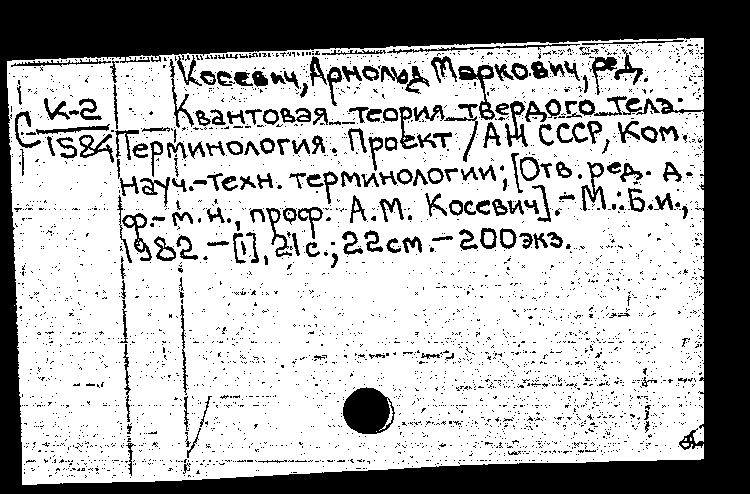 Косевич, Арнольд Маркович, ред.
С К-2
1584
Квантовая теория твердого тела:
Терминология. Проект / АН СССР, Ком.
науч.-техн. терминологии; [Отв. ред. д.
ф.-м.н., проф. А.М. Косевич].- М.: Б.и.,
1982.-[1], 21с.; 22см.- 200экз.